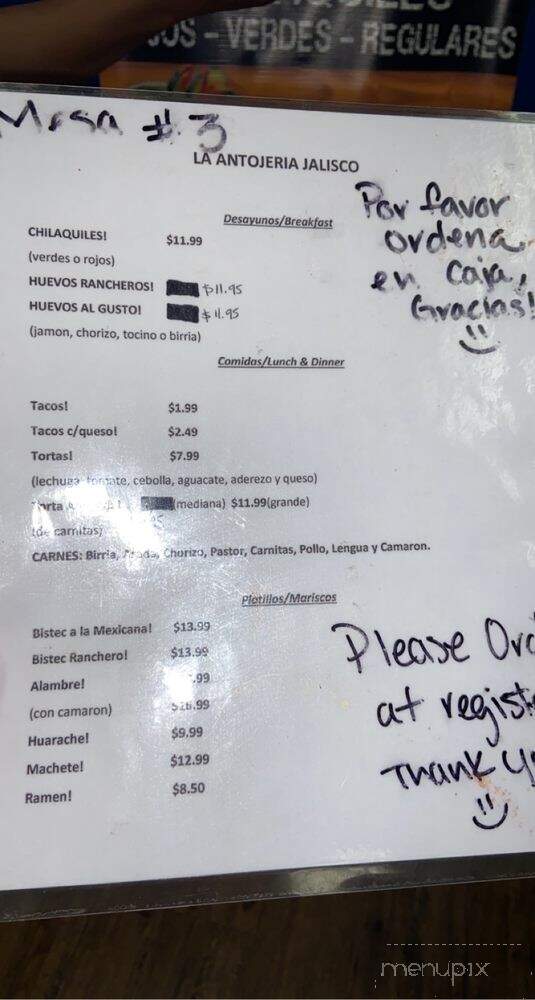 - VERDES - REGULARES
Mesa # 3
LA ANTOJERIA JALISCO
Por favor
ordena
en caja,
Gracias!
Desayunos/Breakfast
CHILAQUILES! $11.99
(verdes o rojos)
HUEVOS RANCHEROS! $11.95
HUEVOS AL GUSTO! $11.95
(jamon, chorizo, tocino o birria)
Comidas/Lunch & Dinner
Tacos! $1.99
Tacos c/queso! $2.49
Tortas! $7.99
(lechuga, tomate, cebolla, aguacate, aderezo y queso)
Torta (mediana) $11.99(grande)
(de carnitas)
CARNES: Birria, Asada, Chorizo, Pastor, Carnitas, Pollo, Lengua y Camaron.
Platillos/Mariscos
Bistec a la Mexicana! $13.99
Bistec Ranchero! $13.99
Alambre! .99
(con camaron) $16.99
Huarache! $9.99
Machete! $12.99
Ramen! $8.50
Please Ord
at regist
Thank Y
menupix